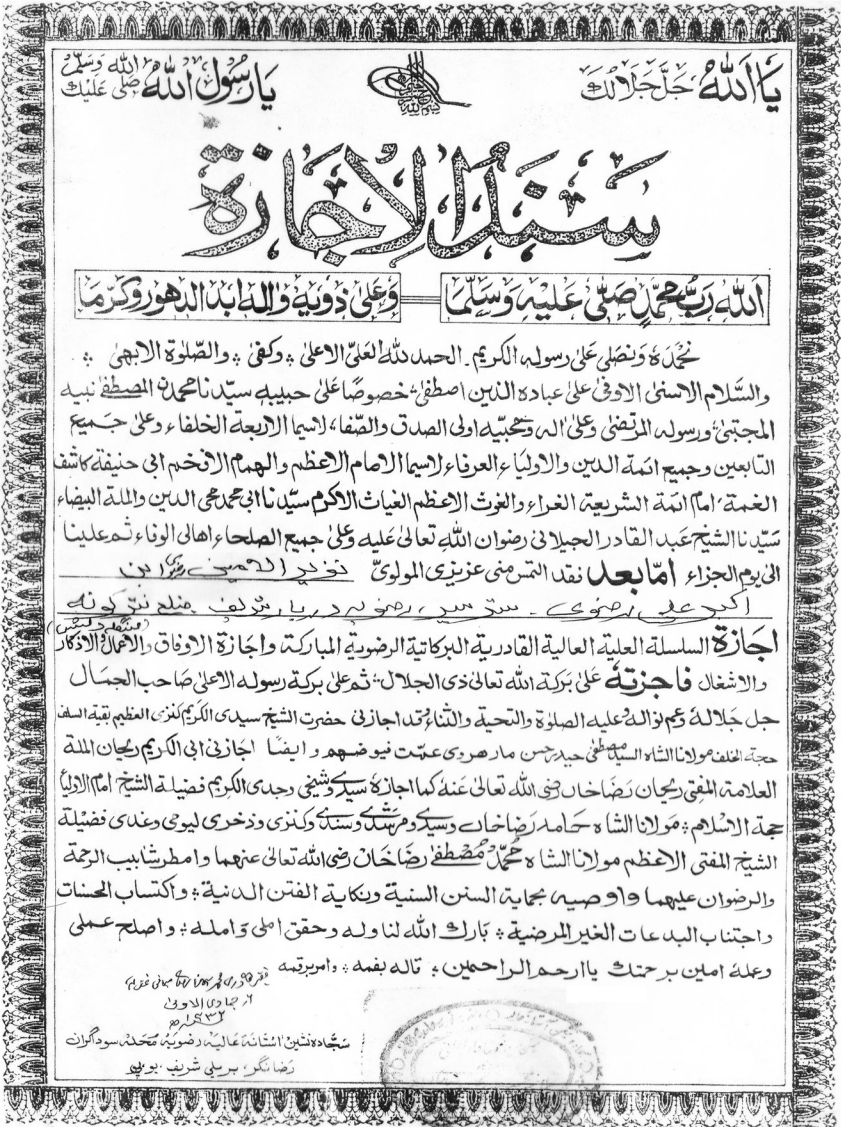 یَا اَللّٰهُ جَلَّ جَلَالُكَ
یَا رَسُولَ اللّٰه صَلَّى اللّٰهُ عَلَیْكَ وَسَلَّم
سَنَدُ الْاِجَازَة
اَللّٰه رَبُّ مُحَمَّدٍ صَلّٰى عَلَیْهِ وَسَلَّمَا
وَعَلٰى ذَوِیْهِ وَاٰلِهٖ اَبَدَ الدُّهُوْرِ وَكَرَّمَا
نحمدہ ونصلی علی رسولہ الکریم۔ الحمد للہ العلیّ الاعلیٰ وکفیٰ والصّلوۃ الابھیٰ
والسّلام الاسنیٰ الاوفیٰ علیٰ عبادہ الذین اصطفیٰ خصوصًا علیٰ حبیبہٖ سیّدنا محمدن المصطفےٰ نبیہ
المجتبیٰ ورسولہ المرتضیٰ وعلیٰ اٰلہ وصحبہٖ اولی الصدق والصّفا، لاسیما الاربعة الخلفاء وعلیٰ جمیع
التابعین وجمیع ائمة الدین والاولیاء العرفاء لاسیما الامام الاعظم والھمام الافخم ابی حنیفة کاشف
الغمة، امام ائمة الشریعة الغراء والغوث الاعظم الغیاث الاکرم سیّدنا ابی محمد محی الدین والملة البیضاء
سیّدنا الشیخ عبد القادر الجیلانی رضوان اللہ تعالیٰ علیہ وعلیٰ جمیع الصلحاء اھالی الوفاء ثم علینا
الیٰ یوم الجزاء امّا بعد فقد التمس منی عزیزی المولویّ
اکبر علی رضوی۔
اجازۃ السلسلة العلیة العالیة القادریة البرکاتیة الرضویة المبارکة واجازۃ الاوفاق والاعمال والاذکار
والاشغال فاجزتہٗ علیٰ برکة اللہ تعالیٰ ذی الجلال ثم علیٰ برکة رسولہ الاعلیٰ صاحب الجمال
جل جلالہ وعم نوالہ وعلیہ الصلوۃ والتحیة والثناء وقد اجازنی حضرت الشیخ سیدی الکریم کنزی العظیم بقیة السلف
حجة الخلف مولانا الشاہ السید مصطفیٰ حیدر حسن مارھروی عمّت فیوضھم وایضًا اجازنی ابی الکریم ریحان الملة
العلامة المفتی ریحان رَضا خاں رضی اللہ تعالیٰ عنہ کما اجازہٗ سیدی وشیخی وجدی الکریم فضیلة الشیخ امام الاولیاء
حجة الاسلام مولانا الشاہ حامد رَضا خاں وسیدی ومرشدی وسندی وکنزی وذخری لیومی وغدی فضیلة
الشیخ المفتی الاعظم مولانا الشاہ محمّد مُصطفےٰ رضا خان رضی اللہ تعالیٰ عنہما وامطر شابیب الرحمة
والرضوان علیھما واوصیہ بحمایة السنن السنیة ونکایة الفتن الدنیة واکتساب الحسنات
واجتناب البدعات الغیر المرضیة بارك اللہ لنا ولہ وحقق املی وَاملہ واصلح عملی
وعملہ اٰمین برحمتك یا ارحم الراحمین قالہ بفمہ وامر برقمہ
جمادی الاولیٰ
١٤٣٢ھ
سَجّادہ نشین آستانۂ عالیہ رضویّہ محلہ سوداگران
رَضا نگر بریلی شریف یوپی